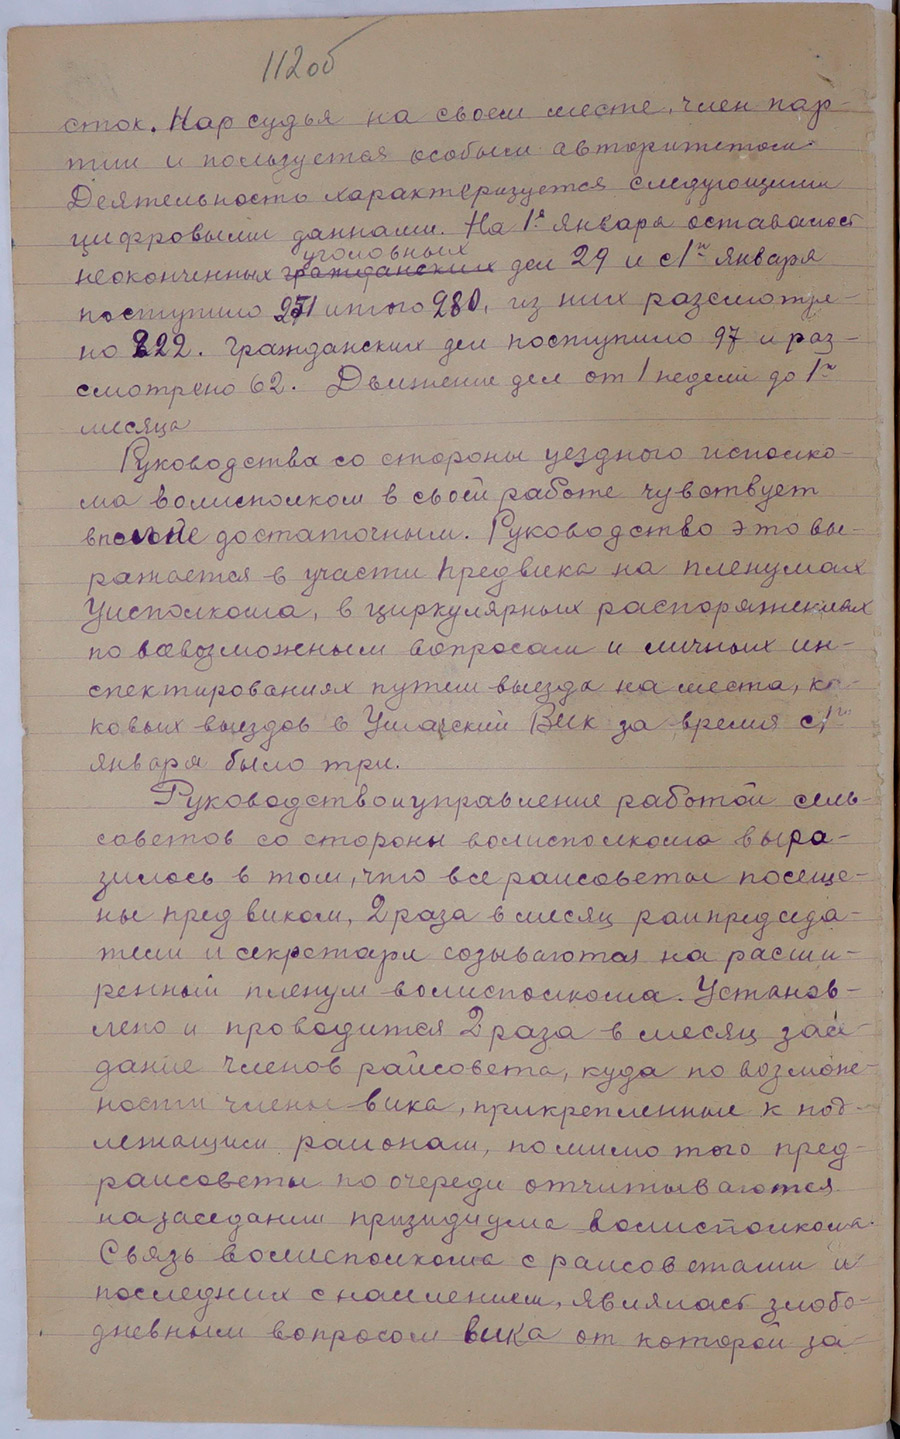 112об
сток. Нар судья на своем месте, член пар-
тии и пользуется особым авторитетом.
Деятельность характеризуется следующими
цифровыми данными. На 1е января оставалост
уголовных
неоконченных гражданских дел 29 и с 1го января
поступило 251 итого 280, из них разсмотре-
но 222. Гражданских дел поступило 97 и раз-
смотрено 62. Движение дел от 1 недели до 1го
месяца
Руководства со стороны уездного исполко-
ма волисполком в своей работе чувствует
вполне достаточным. Руководство это вы-
ражается в участи предвика на пленумах
Уисполкома, в циркулярных распоряжениях
по всевозможным вопросам и личных ин-
спектированиях путем выезда на места, ка-
ковых выездов в ВИК за время с 1го
января было три.
Руководство и управление работой сель-
советов со стороны волисполкома выра-
зилось в том, что все раисоветы посеще-
ны пред виком, 2 раза в месяц раипредседа-
тели и секретари созываются на расши-
ренный пленум волисполкома. Установ-
лено и проводится 2 раза в месяц засе-
дание членов райсовета, куда по возмож-
ности члены вика, прикрепленные к под-
лежащим раионам, помимо того пред-
раисоветы по очереди отчитываются
на заседании призидиума волисполкома.
Связь волисполкома с раисоветами и
последних с населением, являласт злобо-
дневным вопросом вика от которой за-